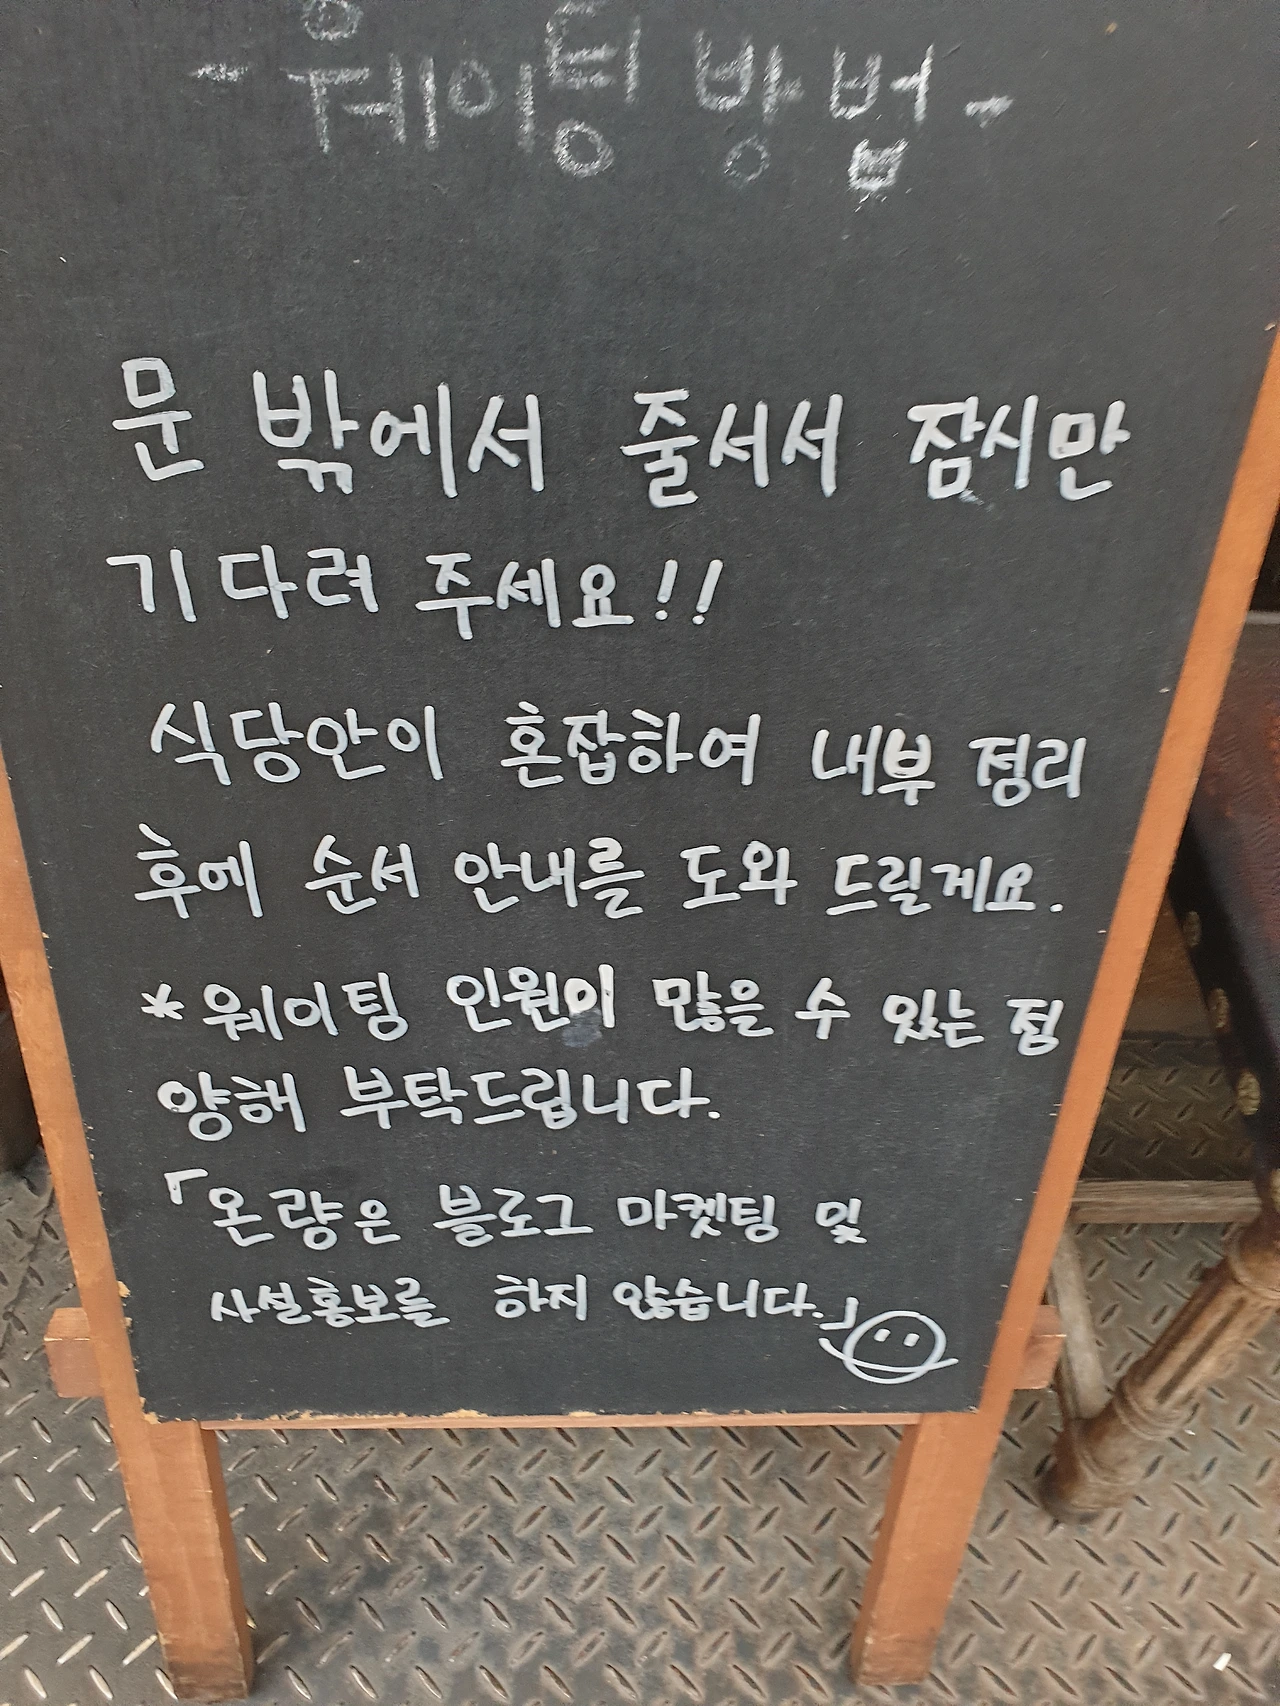 - 웨이팅 방법 -
문 밖에서 줄서서 잠시만
기다려 주세요!!
식당안이 혼잡하여 내부 정리
후에 순서 안내를 도와 드릴게요.
* 웨이팅 인원이 많을 수 있는 점
양해 부탁드립니다.
「온량은 블로그 마켓팅 및
사설홍보를 하지 않습니다.」